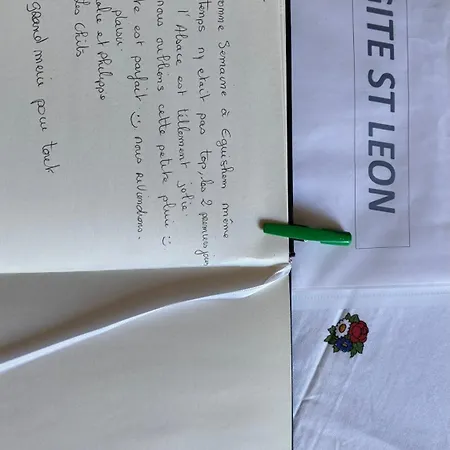 omme Semaine à Eguisheim même
temps n'y était pas top, les 2 premiers jours
l'Alsace est tellement jolie
nous oublions cette petite pluie
te est parfait nous reviendrons.
plaisir
et philippe
les Chtis
grand merci pour tout
GITE ST LEON